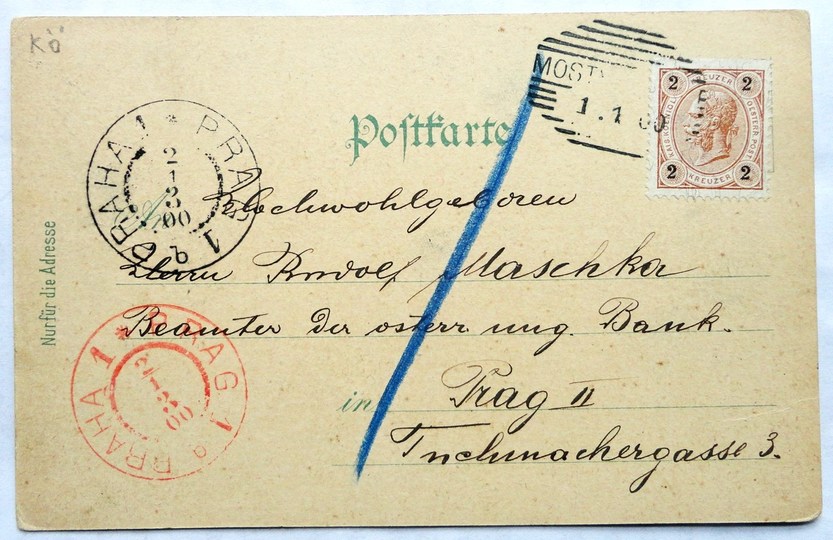 Kö
MOST
1.1 00
2 KREUZER 2
KAIS. KOENIGL.
OESTERR. POST
2 KREUZER 2
Postkarte
PRAHA 1 * PRAG 1
2
1
3
00
b
Hochwohlgeboren
Herrn Rudolf Maschka
Beamter der österr. ung. Bank.
in Prag II
Tuchmachergasse 3.
Nur für die Adresse
PRAHA 1 * PRAG 1